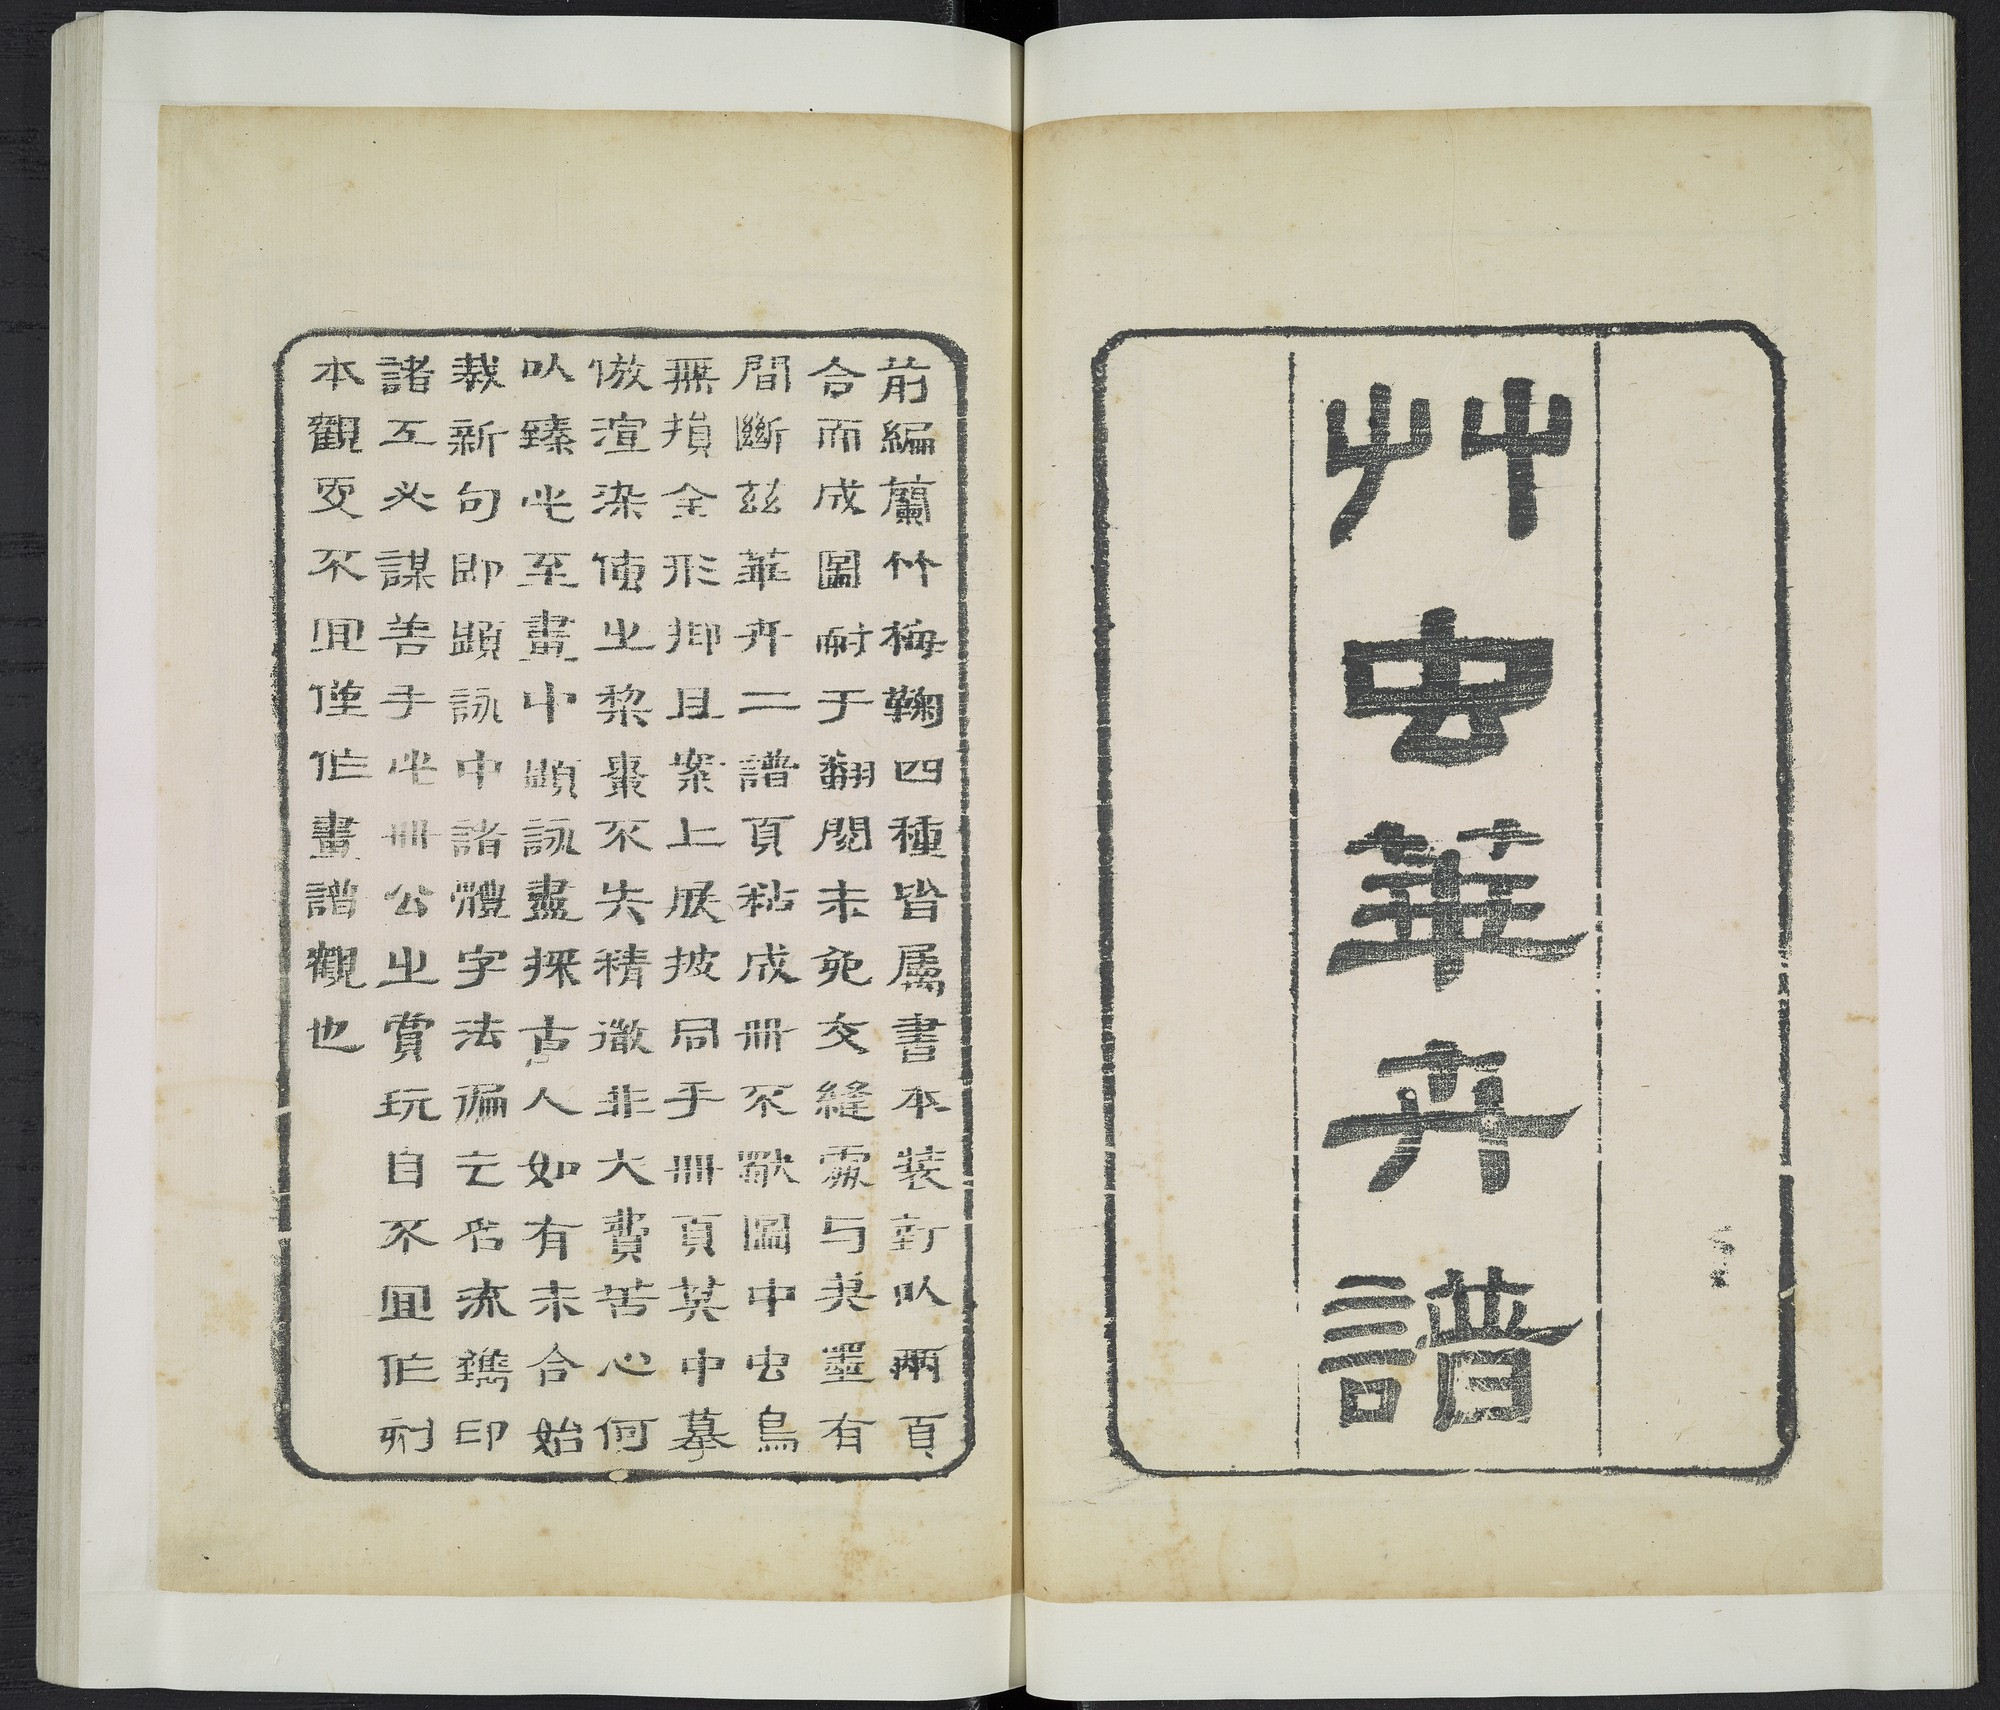 艸虫華卉譜
前編蘭竹梅鞠四種皆属書本装訂以兩頁
合而成圖耐于翻閱未免交縫䖏与美墨有
間斷茲華卉二譜頁粘成冊不獸圖中虫鳥
無損全形抑且案上展披同手冊頁其中摹
倣渲染使之棃棗不失精微非大費苦心何
以臻此至畫中題詠盡採古人如有未合始
裁新句即題詠中諸體字法徧乞名流鐫印
諸工必謀善手此冊公之賞玩自不宜作刻
本觀更不宜僅作畫譜觀也